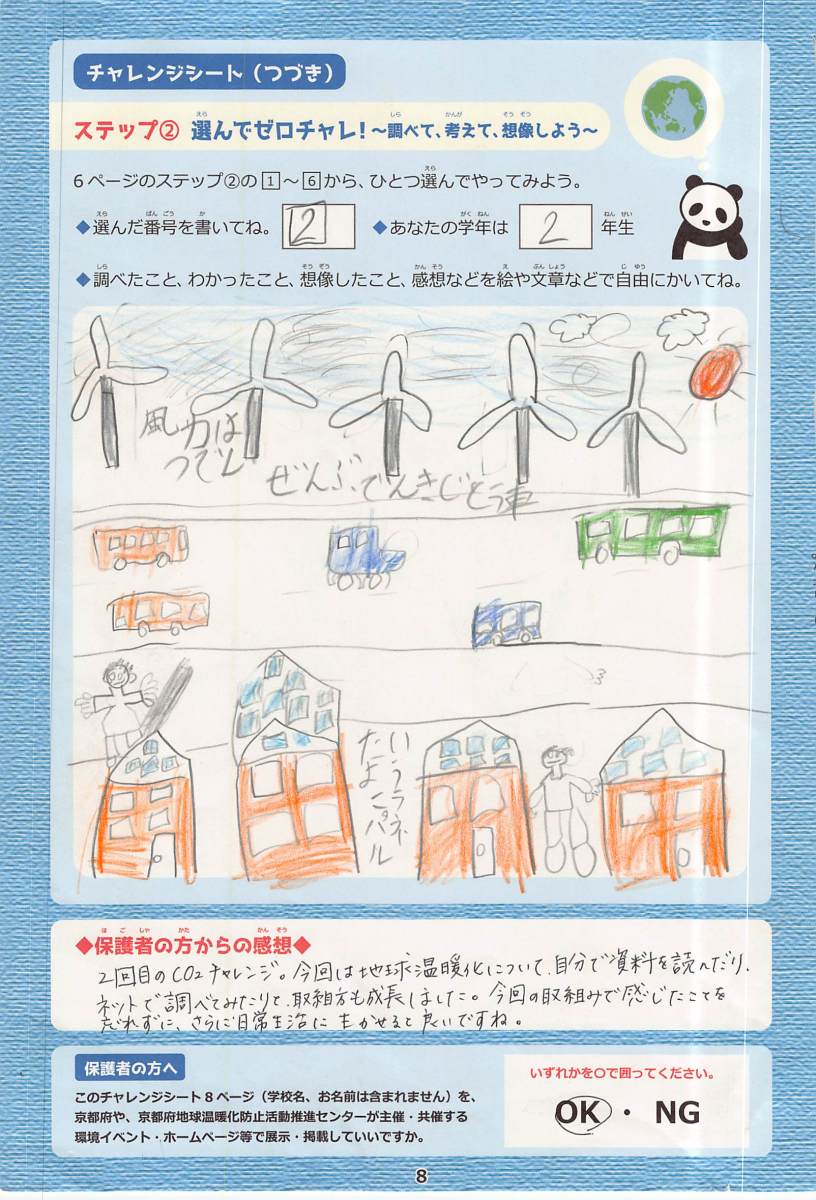 チャレンジシート(つづき)
ステップ② 選んでゼロチャレ!～調べて、考えて、想像しよう～
6ページのステップ②の1～6から、ひとつ選んでやってみよう。
◆選んだ番号を書いてね。 2 ◆あなたの学年は 2 年生
◆調べたこと、わかったこと、想像したこと、感想などを絵や文章などで自由にかいてね。
風力は
つでん
ぜんぶでんきじどう車
◆保護者の方からの感想◆
2回目のCO2チャレンジ。今回は地球温暖化について、自分で資料を読んだり、
ネットで調べてみたりと、取組方も成長しました。今回の取組みで感じたことを
忘れずに、さらに日常生活に生かせると良いですね。
保護者の方へ
このチャレンジシート8ページ(学校名、お名前は含まれません)を、
京都府や、京都府地球温暖化防止活動推進センターが主催・共催する
環境イベント・ホームページ等で展示・掲載していいですか。
いずれかを○で囲ってください。
OK・NG
8